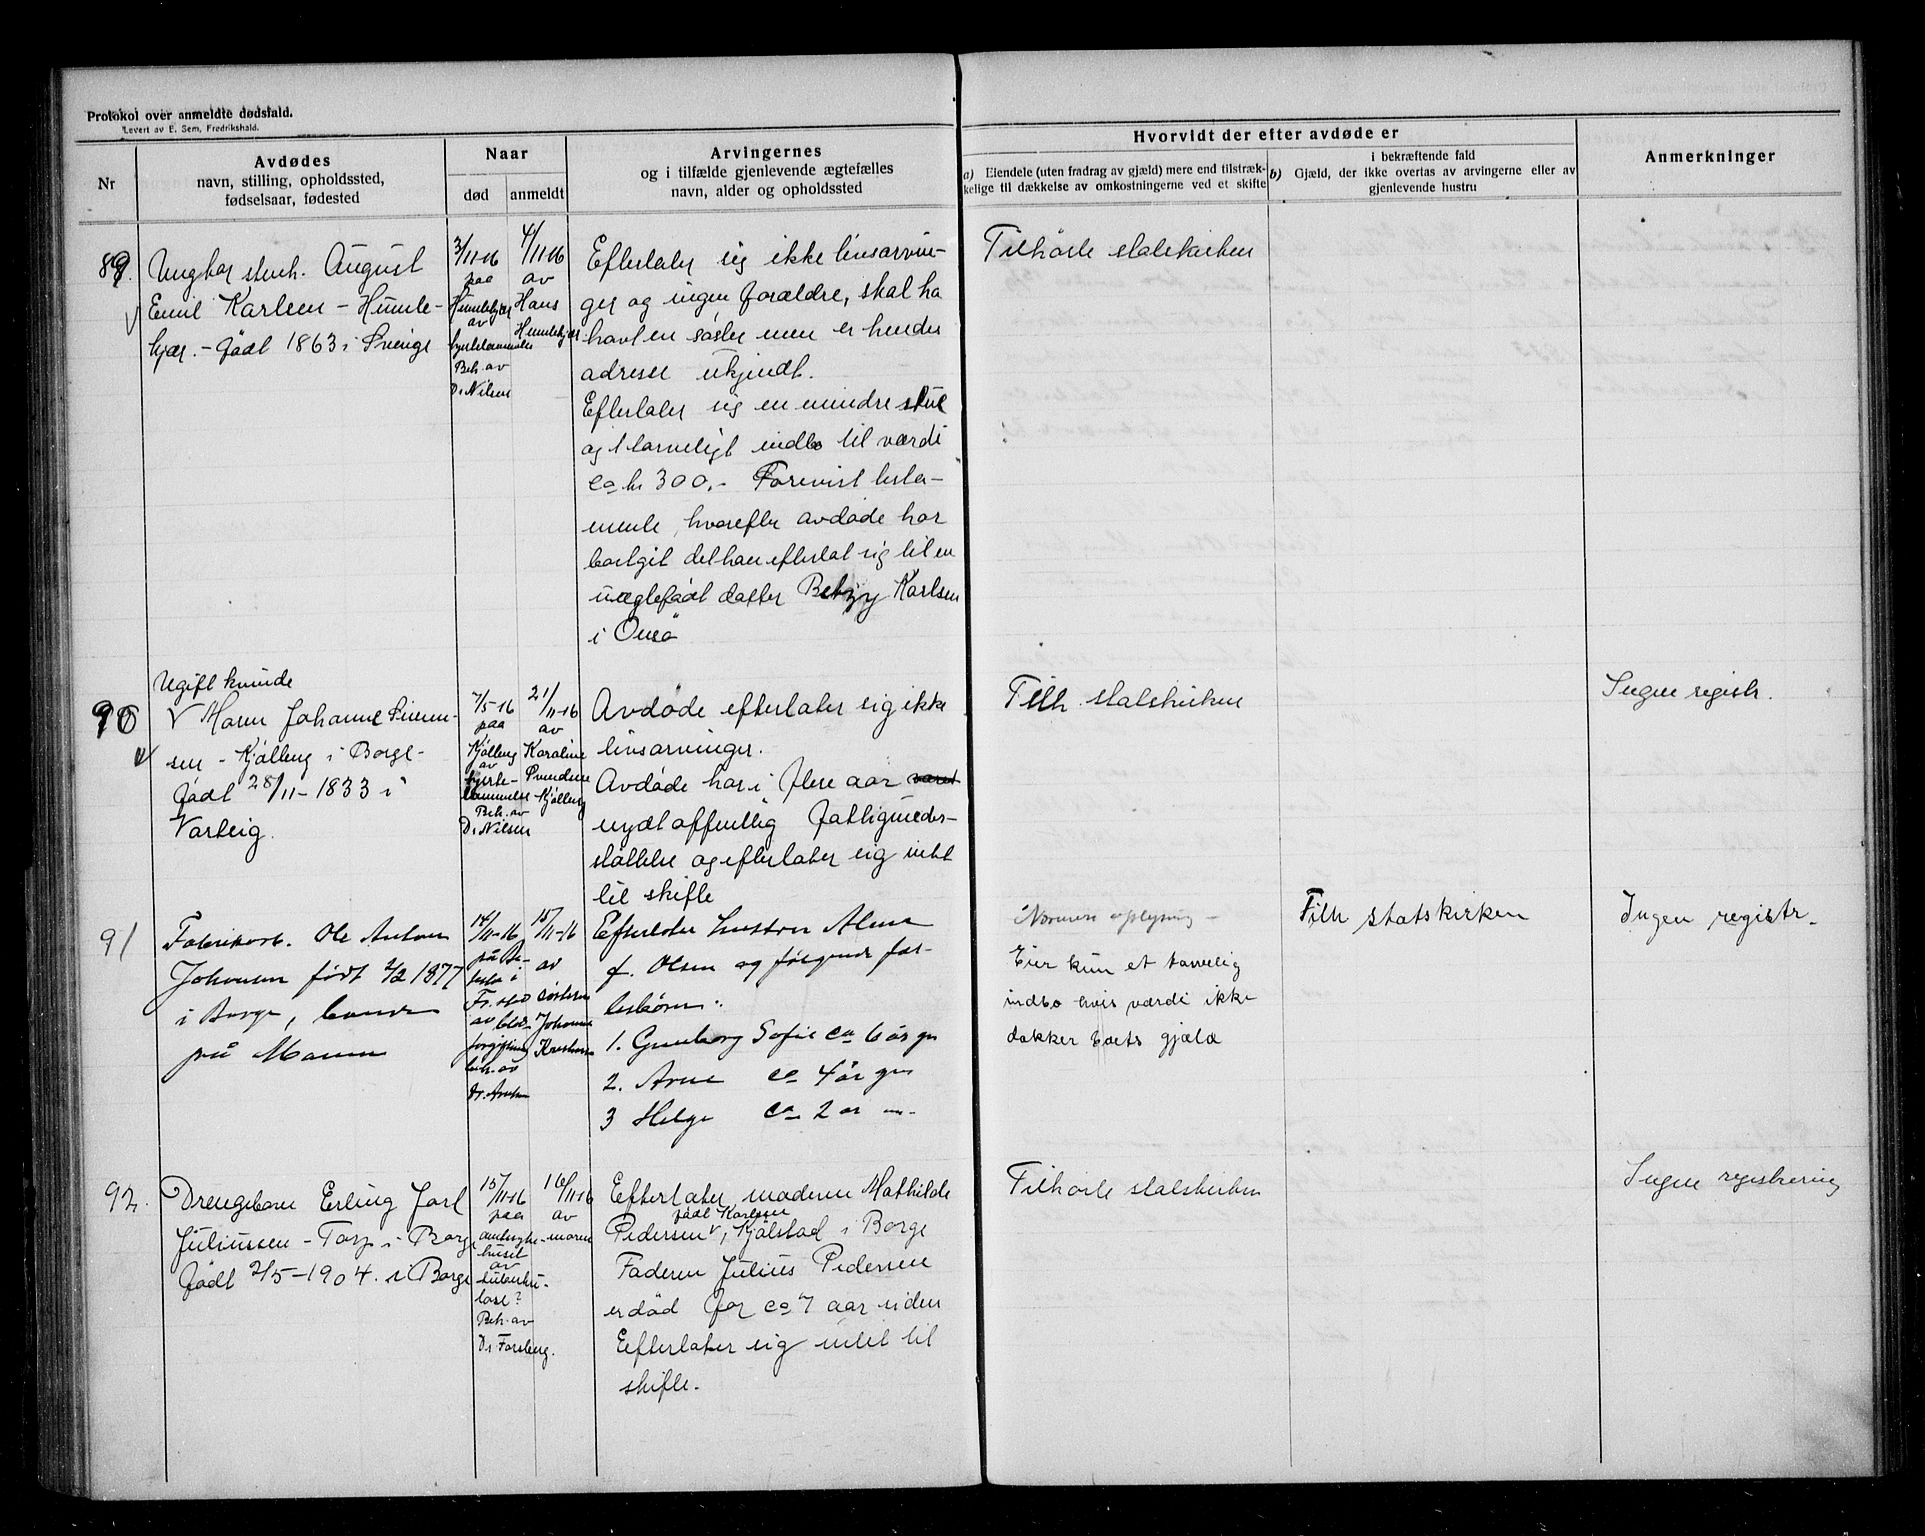 Protokol over anmeldte dødsfald.
Levert av E. Sem, Fredrikshald.
Nr
Avdødes
navn, stilling, opholdssted,
fødselsaar, fødested
Naar
død
anmeldt
Arvingernes
og i tilfælde gjenlevende ægtefælles
navn, alder og opholdssted
Hvorvidt der efter avdøde er
a) Eiendele (uten fradrag av gjæld) mere end tilstræk-
kelige til dækkelse av omkostningerne ved et skifte
i bekræftende fald
b) Gjæld, der ikke overtas av arvingerne eller av
gjenlevende hustru
Anmerkninger
89.
Ungkar stenh. August
Emil Karlsen - Humle-
kjær. - født 1863 i Sverige
3/11-16
paa
Humlekjær
av
hjertelammelse
Beh. av
Dr Nilsen
4/11-16
av
Hans
Humlekjær
Efterlater sig ikke livsarvin-
ger og ingen forældre, skal ha
havt en søster men er hendes
adresse ukjendt.
Efterlater sig en mindre stue
og tarveligt indbo til værdi
ca kr 300,- Forevist testa-
mente, hvorefter avdøde har
bortgit det han efterlot sig til en
uægtefødt datter Betzy Karlsen
i Onsø
Tilhørte statskirken
90
Ugift kvinde
Maren Johanne Siven-
sen - Kjølberg i Borge -
født 28/11-1833 i
Varteig.
7/5-16
paa
Kjølberg
av
hjerte-
lammelse
Beh. av
Dr Nilsen
21/11-16
av
Karoline
Svendsen
Kjølberg
Avdøde efterlater sig ikke
livsarvinger.
Avdøde har i flere aar været
nydt offentlig fattigmeds-
støttelse og efterlater sig intet
til skifte
Tilh. statskirken
Ingen registr.
91
Fabrikarb. Ole Anton
Johansen født 2/2 1877
i Borge, boende
på Moum
14/11-16
på
i
Fr.stad
av blod-
forgiftning
beh. av
Dr.
15/11-16
av
søsteren
Johanne
Efterlater hustru Alma
f. Olsen og følgende fæl-
lesbørn:
1. Gunborg Sofie ca 6 år gn
2. Arne ca 4 år gn
3 Helge ca 2 år
Nærmere oplysning -
Eier kun et tarvelig
indbo hvis værdi ikke
dækker boets gjæld
Tilh statskirken
Ingen registr.
92.
Drengebarn Erling Jarl
Juliussen - Torp i Borge
født 2/5-1904. i Borge
15/11-16
paa
amtssyke-
huset
av
tuberku-
lose?
Beh. av
Dr Forsberg.
16/11-16
av
moren
Efterlater moderen Mathilde
født Karlsen
Pedersen, Kjølstad i Borge
Faderen Julius Pedersen
er død for ca 7 aar siden
Efterlater sig intet til
skifte.
Tilhørte statskirken
Ingen registrering